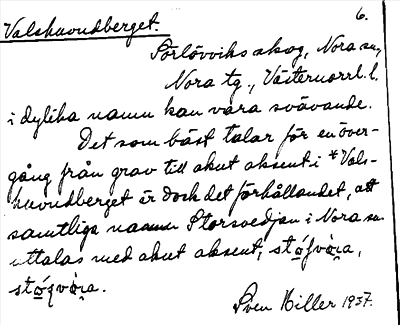 6.
Valshuvudberget.
Sörlövviks skog, Nora sn,
Nora tg., Västernorrl. l.
i dylika namn kan vara svävande.
Det som bäst talar för en över-
gång från grav till akut aksent i *Vals-
huvudberget är dock det förhållandet, att
samtliga namn Storsvedjan i Nora sn
uttalas med akut aksent,
Sven Hiller 1937.